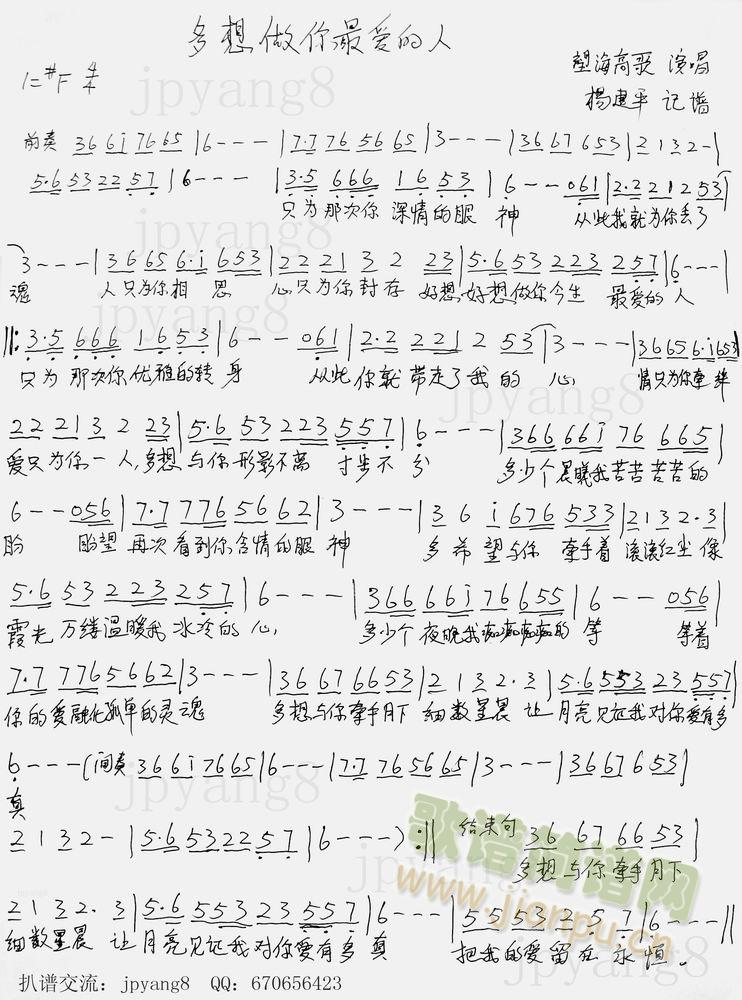 多想做你最爱的人
1=#F 4/4
望海高歌 演唱
杨建平 记谱
前奏 3 6 6 i 7 6 6 5 | 6 - - - | 7·7 7 6 5 6 6 5 | 3 - - - | 3 6 6 7 6 5 3 | 2 1 3 2 - |
5·6 5 3 2 2 5 7 | 6 - - - | 3·5 6 6 6 1 6 5 3 | 6 - - 0 6 1 | 2·2 2 1 2 5 3 |
只为那次你 深情的眼 神 从此我就为你丢了
3 - - - | 3 6 6 5 6·i 6 5 3 | 2 2 2 1 3 2 2 3 | 5·6 5 3 2 2 3 2 5 7 | 6 - - - |
魂 人只为你相 思 心只为你封存 好想好想做你今生 最爱的 人
||: 3·5 6 6 6 1 6 5 3 | 6 - - 0 6 1 | 2·2 2 2 1 2 5 3 | 3 - - - | 3 6 6 5 6·i 6 5 3 |
只为 那次你优雅的转 身 从此 你就 带走了我 的 心 情只为你牵绊
2 2 2 1 3 2 2 3 | 5·6 5 3 2 2 3 5 5 7 | 6 - - - | 3 6 6 6 6 i 7 6 6 6 5 |
爱只为你一 人,多想 与你形影不离 寸步不 分 多少个晨曦我苦苦苦苦的
6 - - 0 5 6 | 7·7 7 7 6 5 6 6 2 | 3 - - - | 3 6 i 6 7 6 5 3 3 | 2 1 3 2·3 |
盼 盼望 再次看到你含情的眼 神 多希 望与你 牵手着 滚滚红尘 像
5·6 5 3 2 2 3 2 5 7 | 6 - - - | 3 6 6 6 6 i 7 6 6 5 5 | 6 - - 0 5 6 |
霞光 万缕温暖我 冰冷的 心, 多少个 夜晚我痴痴痴痴的 等 等着
7·7 7 7 6 5 6 6 2 | 3 - - - | 3 6 6 7 6 6 5 3 | 2 1 3 2·3 | 5·6 5 5 3 2 3 5 5 7 |
你的爱融化孤单的灵魂 多想与你牵手月下 细数星晨 让 月亮见证我对你爱有多
6 - - - (间奏 3 6 6 i 7 6 6 5 | 6 - - - | 7·7 7 6 5 6 6 5 | 3 - - - | 3 6 6 7 6 5 3 |
真
2 1 3 2 - | 5·6 5 3 2 2 5 7 | 6 - - - ) :|| 结束句 3 6 6 7 6 6 5 3 |
多想 与你 牵手月下
2 1 3 2· 3 | 5·6 5 5 3 2 3 5 5 7 | 6 - - - | 5 5 5 3 2 5 7 | 6 - - - ||
细数星晨 让 月亮见证我对你爱有多 真 把我的爱 留在 永 恒。
歌谱简谱网
www.jianpu.cn
扒谱交流：jpyang8 QQ：670656423